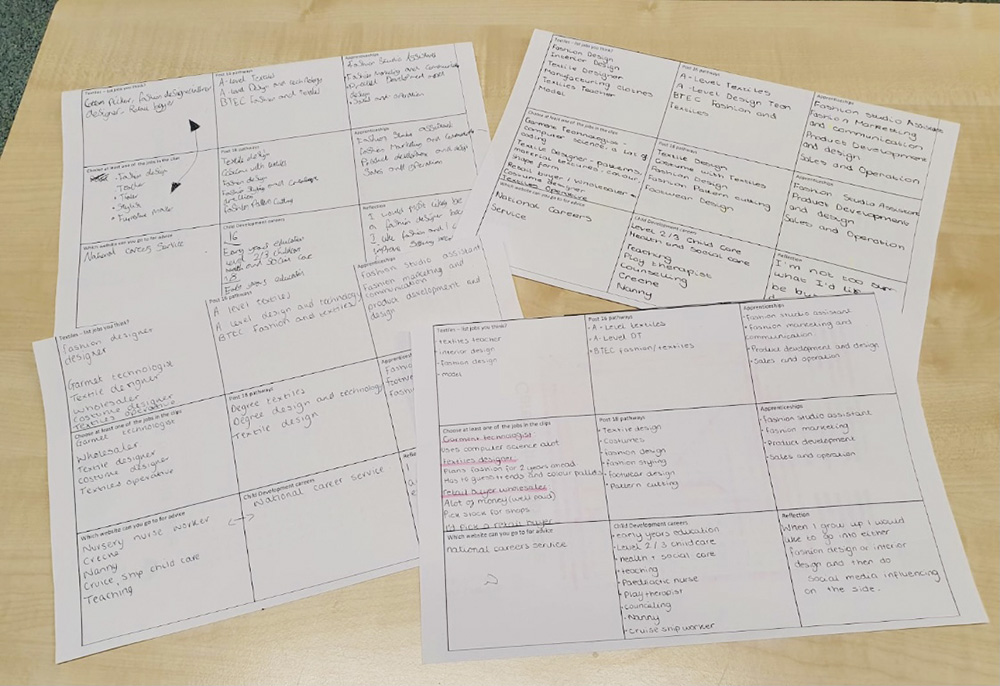 Textiles – list jobs you think?
designer
Post 16 pathways
A-Level Textiles
A-Level Design and technology
BTEC Fashion and Textiles
Apprenticeships
Fashion Studio Assistant
Fashion Marketing and Communication
Product Development and
design
Sales and
Choose at least one of the jobs in the clips
Fashion design
Teacher
Tailor
Stylist
Furniture maker
Post 18 pathways
Textile design
Costume with textiles
Fashion design
Fashion Styling and
Fashion Pattern Cutting
Apprenticeships
Fashion Studio assistant
Fashion Marketing and Communication
Product development and design
Sales and operations
Which website can you go to for advice
National Careers Service
Child Development careers
16
Early years education
Level 2/3 childcare
and social care
18
Early years educator
Reflection
I would
a fashion designer
I like fashion and I
Textiles – list jobs you think?
Fashion Design
Interior Design
Textile Designer
Manufacturing clothes
Textiles Teacher
Model
Post 16 pathways
A-Level Textiles
A-Level Design Tech
BTEC Fashion and
Textiles
Apprenticeships
Fashion Studio Assistant
Fashion Marketing
and communication
Product Development
and design
Sales and Operation
Choose at least one of the jobs in the clips
Garment Technologist -
computer science, a lot of
coding
Textile Designer - patterns,
material, textures, colour,
shape form
Retail buyer / wholesaler
Costume designer
Textiles Operative
Post 18 pathways
Textile Design
Costume with Textiles
Fashion Design
Fashion Pattern cutting
Footwear Design
Apprenticeships
Fashion Studio Assistant
Product Development
and design
Sales and Operation
Which website can you go to for advice
National Careers
Service
Child Development careers
Level 2/3 Child care
Health and Social care
Teaching
Play therapist
Counselling
Creche
Nanny
Reflection
I'm not too sure
what I'd like
be
Textiles – list jobs you think?
fashion designer
designer
Garmet technologist
Textile designer
wholesaler
costume designer
Textiles operative
Post 16 pathways
A level textiles
A level design and technology
BTEC fashion and textiles
Apprenticeships
Fashion studio assistant
Fashion marketing and
communication
product development and
design
Choose at least one of the jobs in the clips
Garmet technologist
Wholesaler
Textile designer
costume designer
Textiles operative
Post 18 pathways
Degree textiles
Degree design and technology
Textile design
Which website can you go to for advice
Nursery nurse worker
Creche
Nanny
Cruice, ship child care
Teaching
Child Development careers
National career service
Textiles – list jobs you think?
• textiles teacher
• interior design
• fashion design
• model
Post 16 pathways
• A-Level textiles
• A-Level DT
• BTEC fashion/textiles
Apprenticeships
• Fashion studio assistant
• fashion marketing and
communication
• Product development and design
• Sales and operation
Choose at least one of the jobs in the clips
Garment technologist
uses computer science alot
textiles designer
Plans fashion for 2 years ahead
Has to guess trends and colour pallets
retail buyer wholesaler
Alot of money (well paid)
Pick stock for shops
I'd pick a retail buyer
Post 18 pathways
• Textile design
• Costumes
• fashion design
• fashion styling
• footwear design
• Pattern cutting
Apprenticeships
• fashion studio assistant
• fashion marketing
• Product development
• Sales and operation
Which website can you go to for advice
national careers service
Child Development careers
• early years education
• Level 2/3 childcare
• health + social care
• teaching
• Paediactic nurse
• Play therapist
• counceling
• Nanny
• Cruise ship worker
Reflection
When I grow up I would
like to go into either
fashion design or interior
design and then do
social media influencing
on the side.